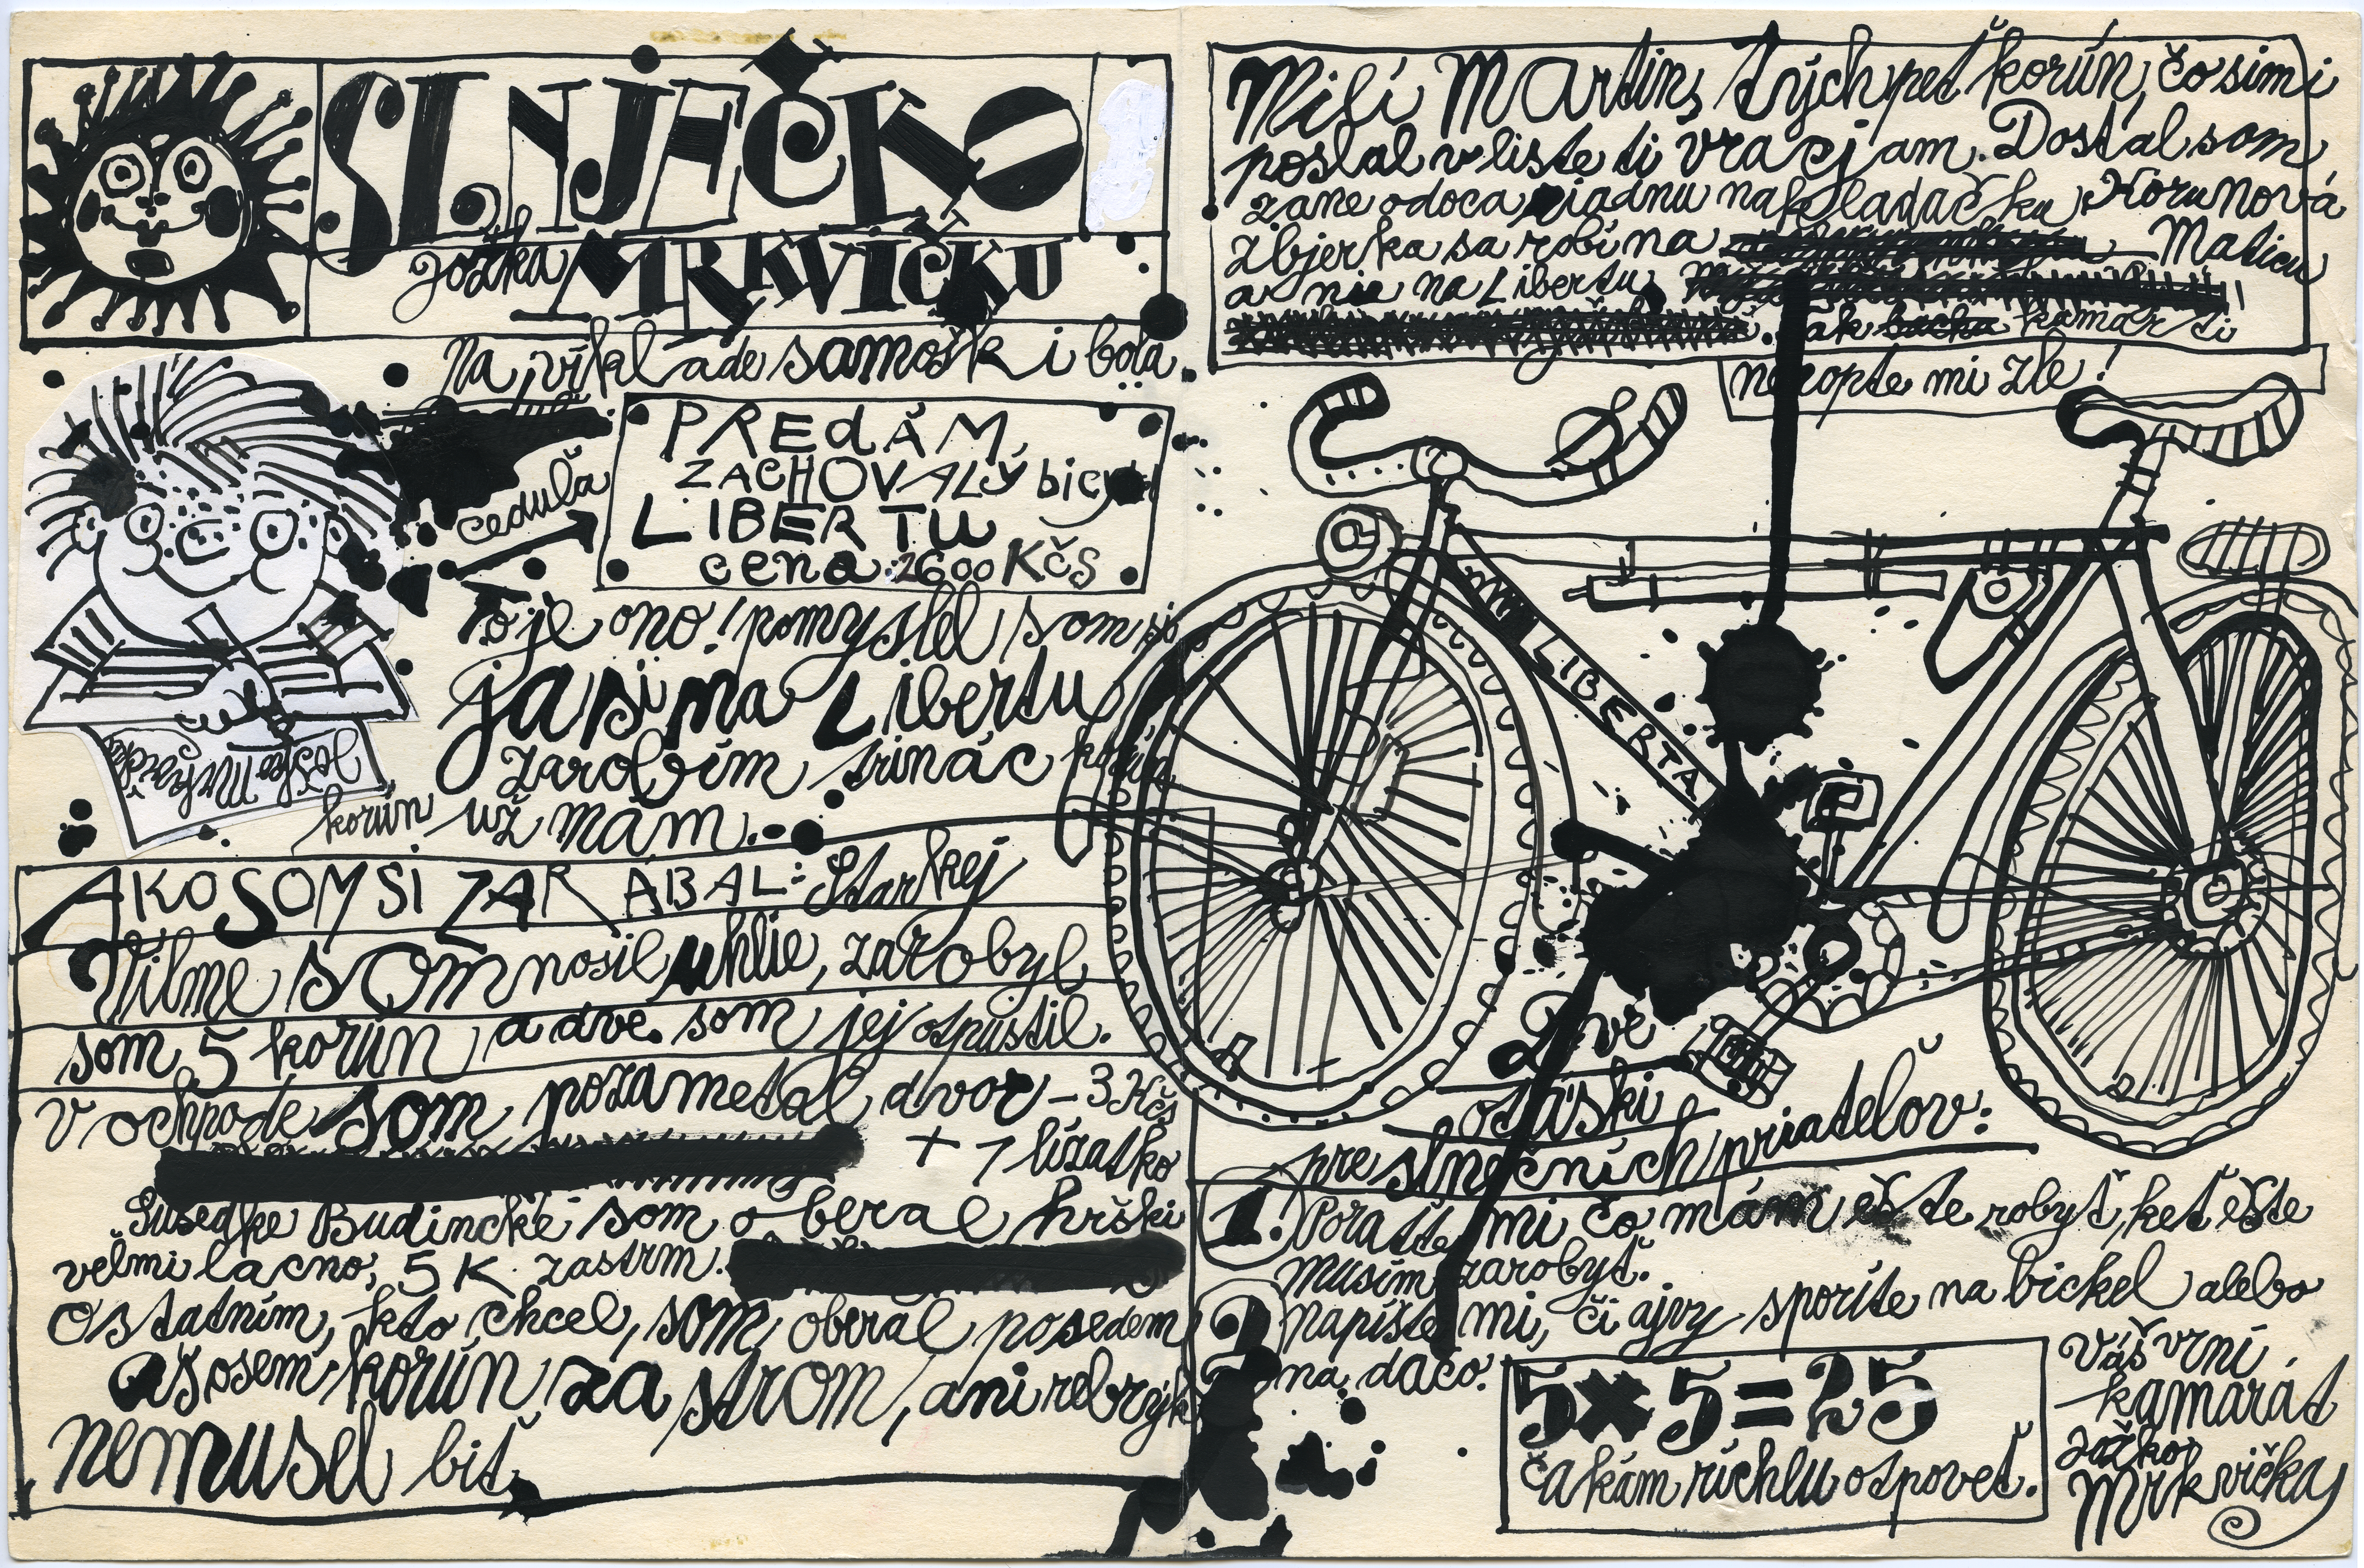 SLNJEČKO
Jožka MRKVIČKU
Na víkladesamoški bola
cedulä
PREDÁM
ZACHOVALÝ
LIBERTU
cena 2600 Kčs
To je ono! pomyslel som si
ja si na Libertu
zarobím trinác korún
korún už mám.
Jožko Mrkvička
AKO SOM SI ZARÁBAL: Starkej
Vilme som nosil uhlie, zarobyl
som 5 korún a dve som jej otpustil.
v ochpode som pozametal dvor - 3 Kčs
+ 1 lízatko
Susedke Budincké som oberal hrški
velmi lacno, 5 K zastrm.
Ostatním, kto chcel, som oberal posedem
aj osem korún za strom, ani rebryk
nemusel bit
Milí Martin, tých pet korún, čo sim i
poslal v liste ti vracjam. Dostal som
zane odoca riadnu nakladačku. Korunová
zbjerka sa robí na Maticu
a nie na Libertu
Tak kamar ti
nekopte mi zle!
LIBERTA
Dve
otáski
pre slnečních priatelov:
1. Poratte mi čo mám ešte robyť, keť ešte
musím zarobyť.
2 Napíšte mi, či ajvy sporíte na bickel alebo
na dačo.
5×5=25
čakám ríchlu otpoveť.
Váš vrní
kamarát
Jožko
Mrkvička